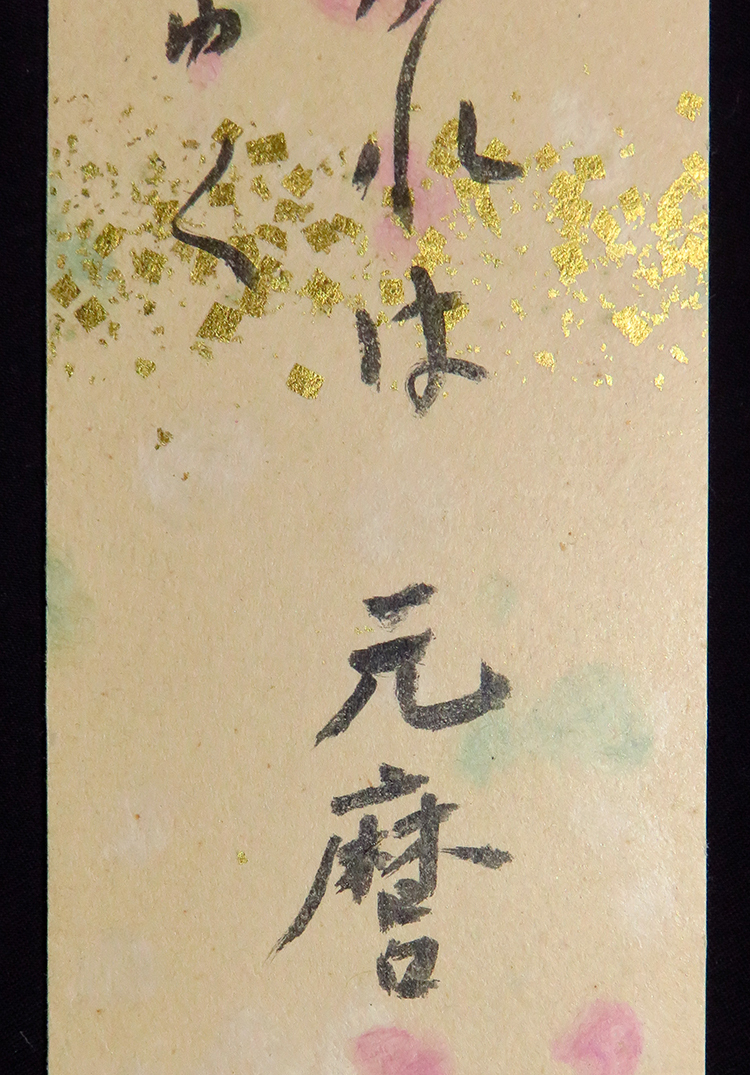 れは
ゆく
元麿